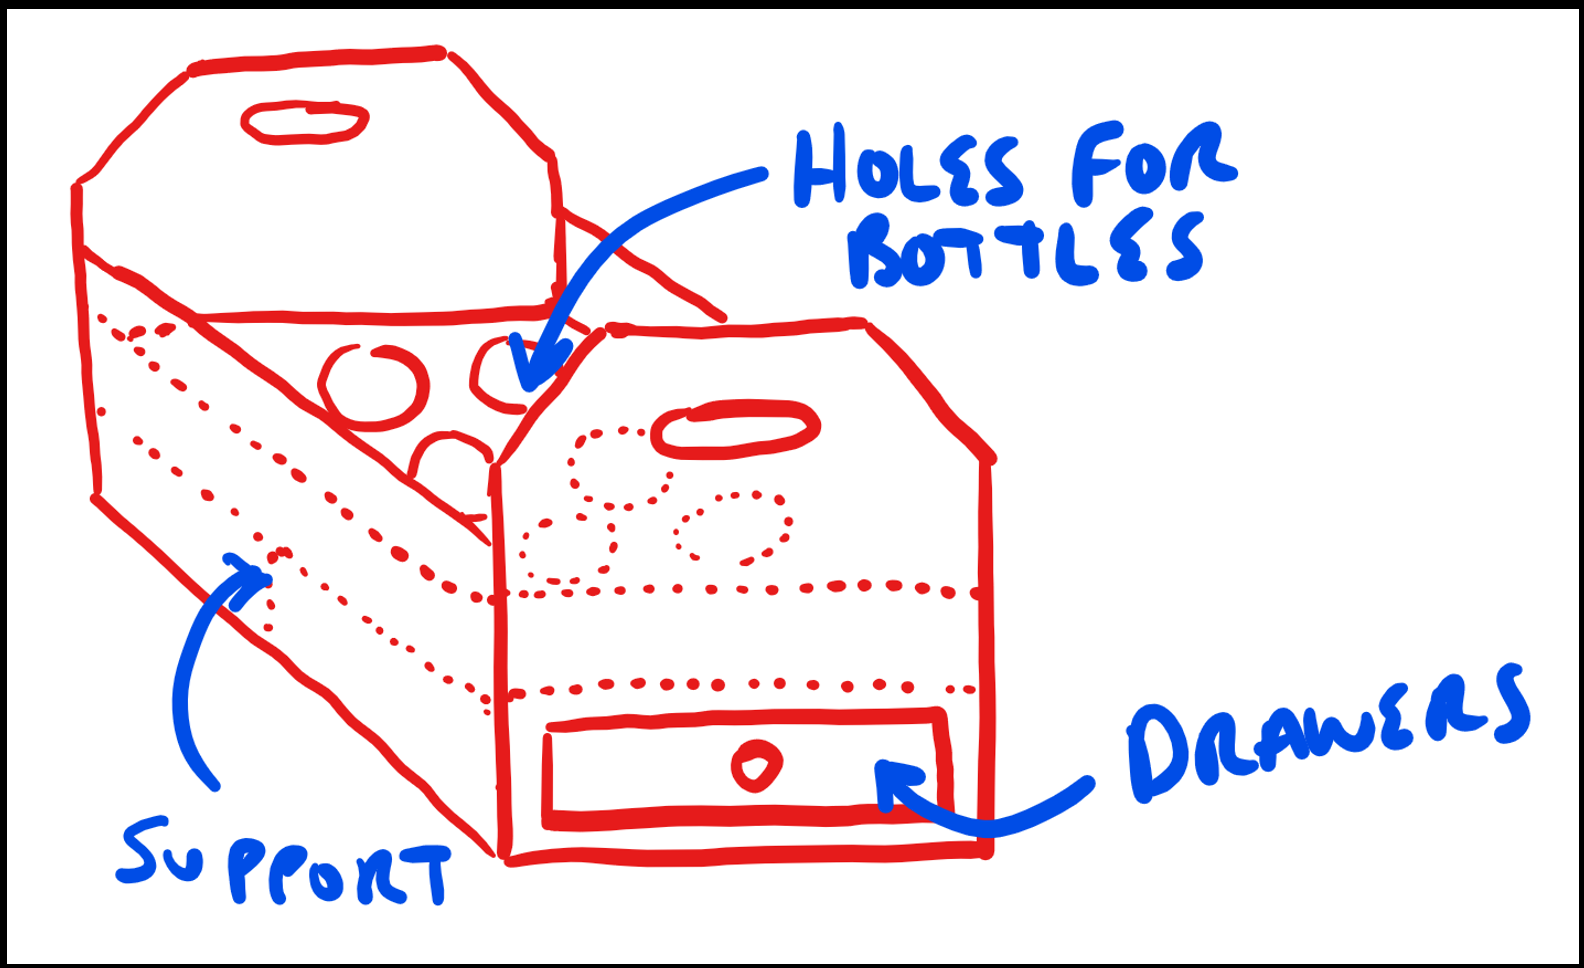 HOLES FOR
BOTTLES
DRAWERS
SUPPORT